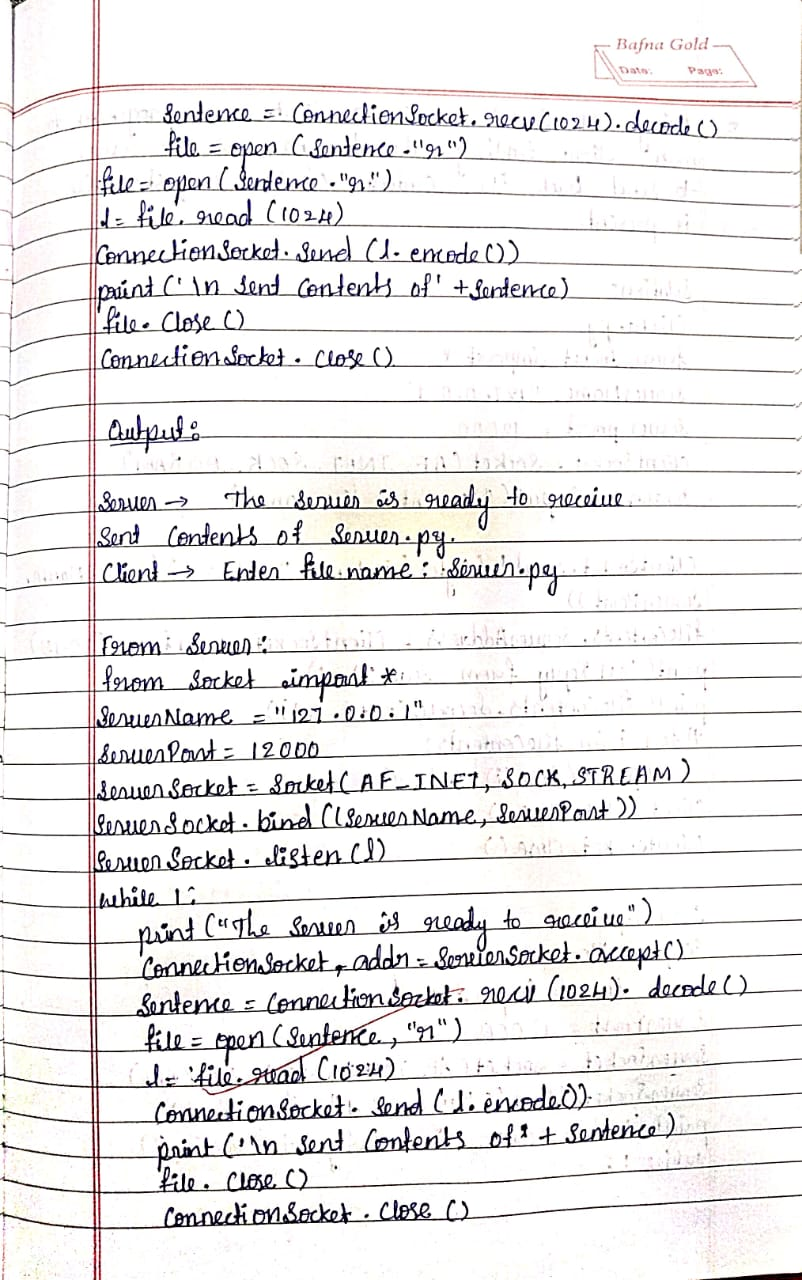 Bafna Gold
Date: Page:
Sentence = ConnectionSocket.recv(1024).decode()
file = open (Sentence."r")
file = open (Sentence."r")
l = file.read (1024)
ConnectionSocket.Send (l.encode())
print ('\n Sent Contents of' + Sentence)
file.Close ()
ConnectionSocket.Close ()
Output:
Server → The Server is ready to receive
Sent Contents of Server.py.
Client → Enter file name: Server.py
From Server:
from Socket import *
ServerName = "127.0.0.1"
ServerPort = 12000
ServerSocket = Socket(AF_INET, SOCK_STREAM)
ServerSocket.bind ((ServerName, ServerPort))
ServerSocket.listen (1)
while 1:
print ("The Server is ready to receive")
ConnectionSocket, addr = ServerSocket.accept()
Sentence = ConnectionSocket.recv (1024).decode()
file = open (Sentence, "r")
l = file.read (1024)
ConnectionSocket.Send (l.encode())
print ('\n Sent Contents of' + Sentence)
file.Close ()
ConnectionSocket.Close ()